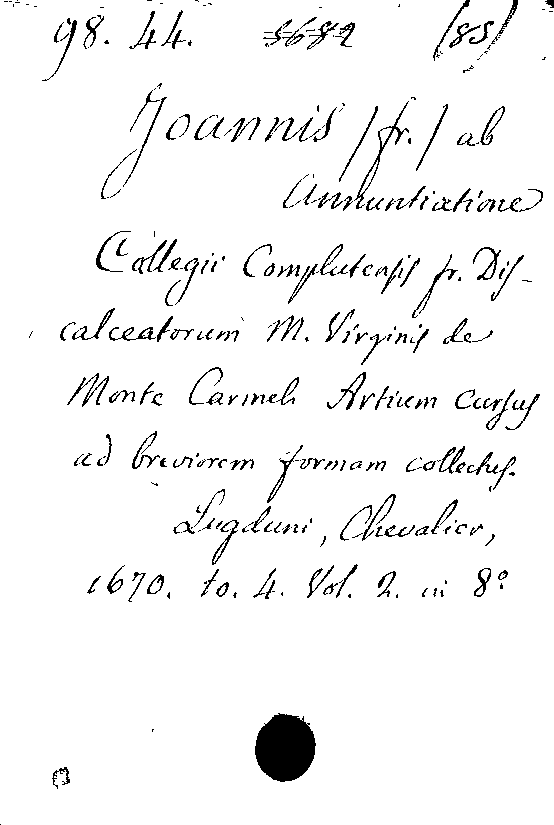 98. 44. 3682 (85)
Joannis /fr./ ab
Annuntiatione
Collegii Complutensis fr. Dis-
calceatorum M. Virginis de
Monte Carmeli Artium cursus
ad breviorem formam collectus.
Lugduni, Chevalier,
1670. to. 4. Vol. 2. in 8º